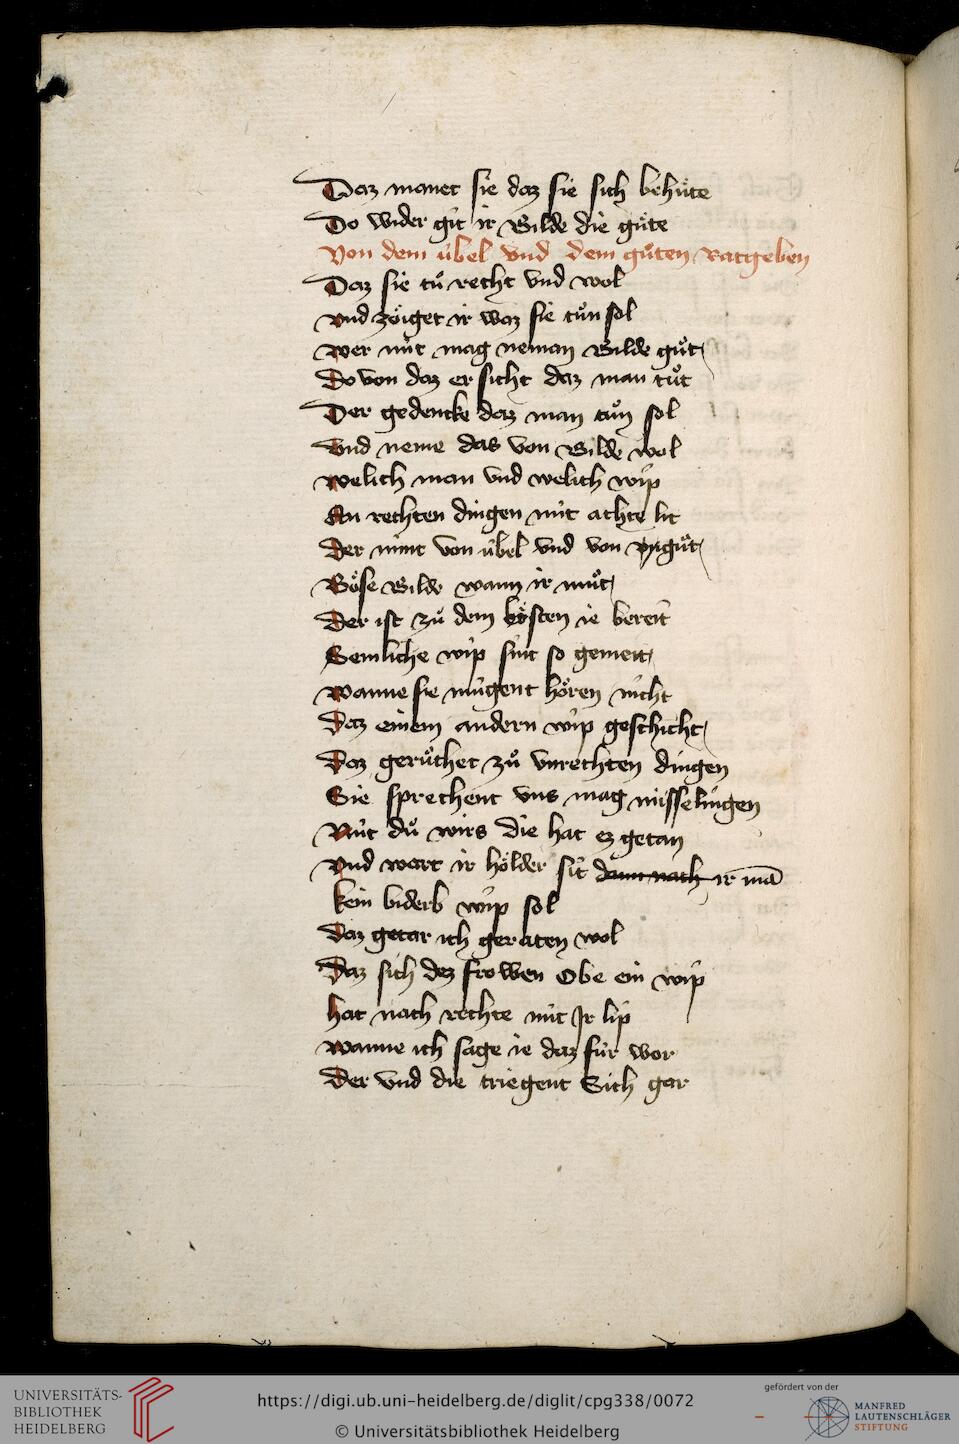 Daz manet sie daz sie sich behuͤte
Do wider git ir Bilde die guͤte
Von dem ubel vnd dem guͦten Ratgeben
Daz sie tuͦ recht vnd wol
vnd zoͤiget ir waz sie tuͦn sol
wer nit mag neman Bilde guͦt
Do von daz er sicht daz man tuͦt
Der gedencke daz man tuͦn sol
vnd neme das von Bilde wol
welich man vnd welich wip
An rechten dingen nit achte lit
Der nimt von ubel vnd von vnguͦt
Boͤse Bilde wann ir muͦt
Der ist zuͦ dem boͤsten ie bereit
Semliche wip sint so gemeit
wanne sie mugent hoͤren nicht
Daz einem andern wip geschicht
Daz geruͦchet zuͦ vnrechten dingen
Sie sprechent vns mag misselingen
Nut duͦ wirs die hat ez getan
vnd wart ir hoͤlder sit dann nach ir mā
kein biderb wip sol
Daz getar ich geraten wol
Daz sich dez frowen Obe ein wip
hat nach rechte nit Jr lip
wanne ich sage ie daz fur wor
Der vnd die triegent Sich gar
UNIVERSITÄTS-
BIBLIOTHEK
HEIDELBERG
https://digi.ub.uni-heidelberg.de/diglit/cpg338/0072
© Universitätsbibliothek Heidelberg
gefördert von der
MANFRED
LAUTENSCHLÄGER
STIFTUNG